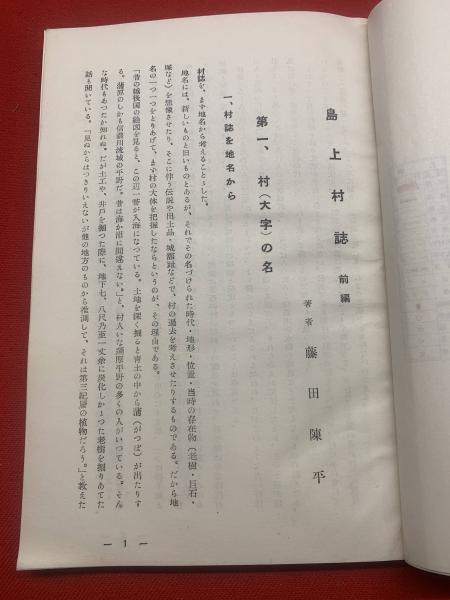 島上村誌 前編
著者 藤田陳平
第一、村(大字)の名
一、村誌を地名から
村誌を、まず地名から考えることゝした。
地名には、新しいものと旧いものとあるが、それでその名づけられた時代・地形・位置・当時の存在物(老樹・巨石・
塚など)を想像させたり、そこに伴う伝説や出土品・城館趾などで、村の過去を考えさせたりするものである。だから地
名の一つ一つをとりあげて、まず村の大体を把握したならというのが、その理由である。
「昔の越後国の絵図を見ると、この辺一帯が入海になつている。土地を深く掘ると青土の中から蒲(がつぼ)が出たりす
る。蒲原のしかも信濃川流域の平野だ。昔は海か沼に間違えない。」と、村人いな蒲原平野の多くの人がいつている。そん
な時代もあつたか知れぬ。だが土工や、井戸を掘つた際に、地下七、八尺乃至一丈余に炭化しかゝつた老樹を掘りあてた
話も聞いている。「見ぬからはつきりいえないが他の地方のものから推測して、それは第三紀層の植物だろう。」と教えた
— 1 —